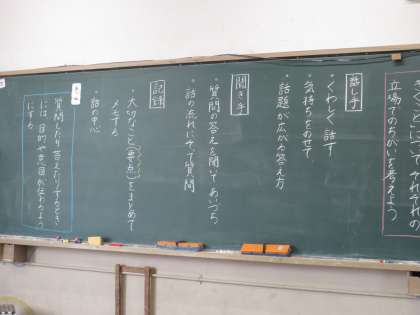 きくことについて、それぞれの
立場でのちがいを考えよう
話し手
・くわしく話す
・気持ちをのせて
・話題が広がる答え方
聞き手
・質問の答えを聞いてあいづち
・話の流れにそって質問
記録
・大切なこと(要点)をまとめて
メモする
・話の中心
質問したり答えたりするとき
には、目的や意図が伝わるよう
にする